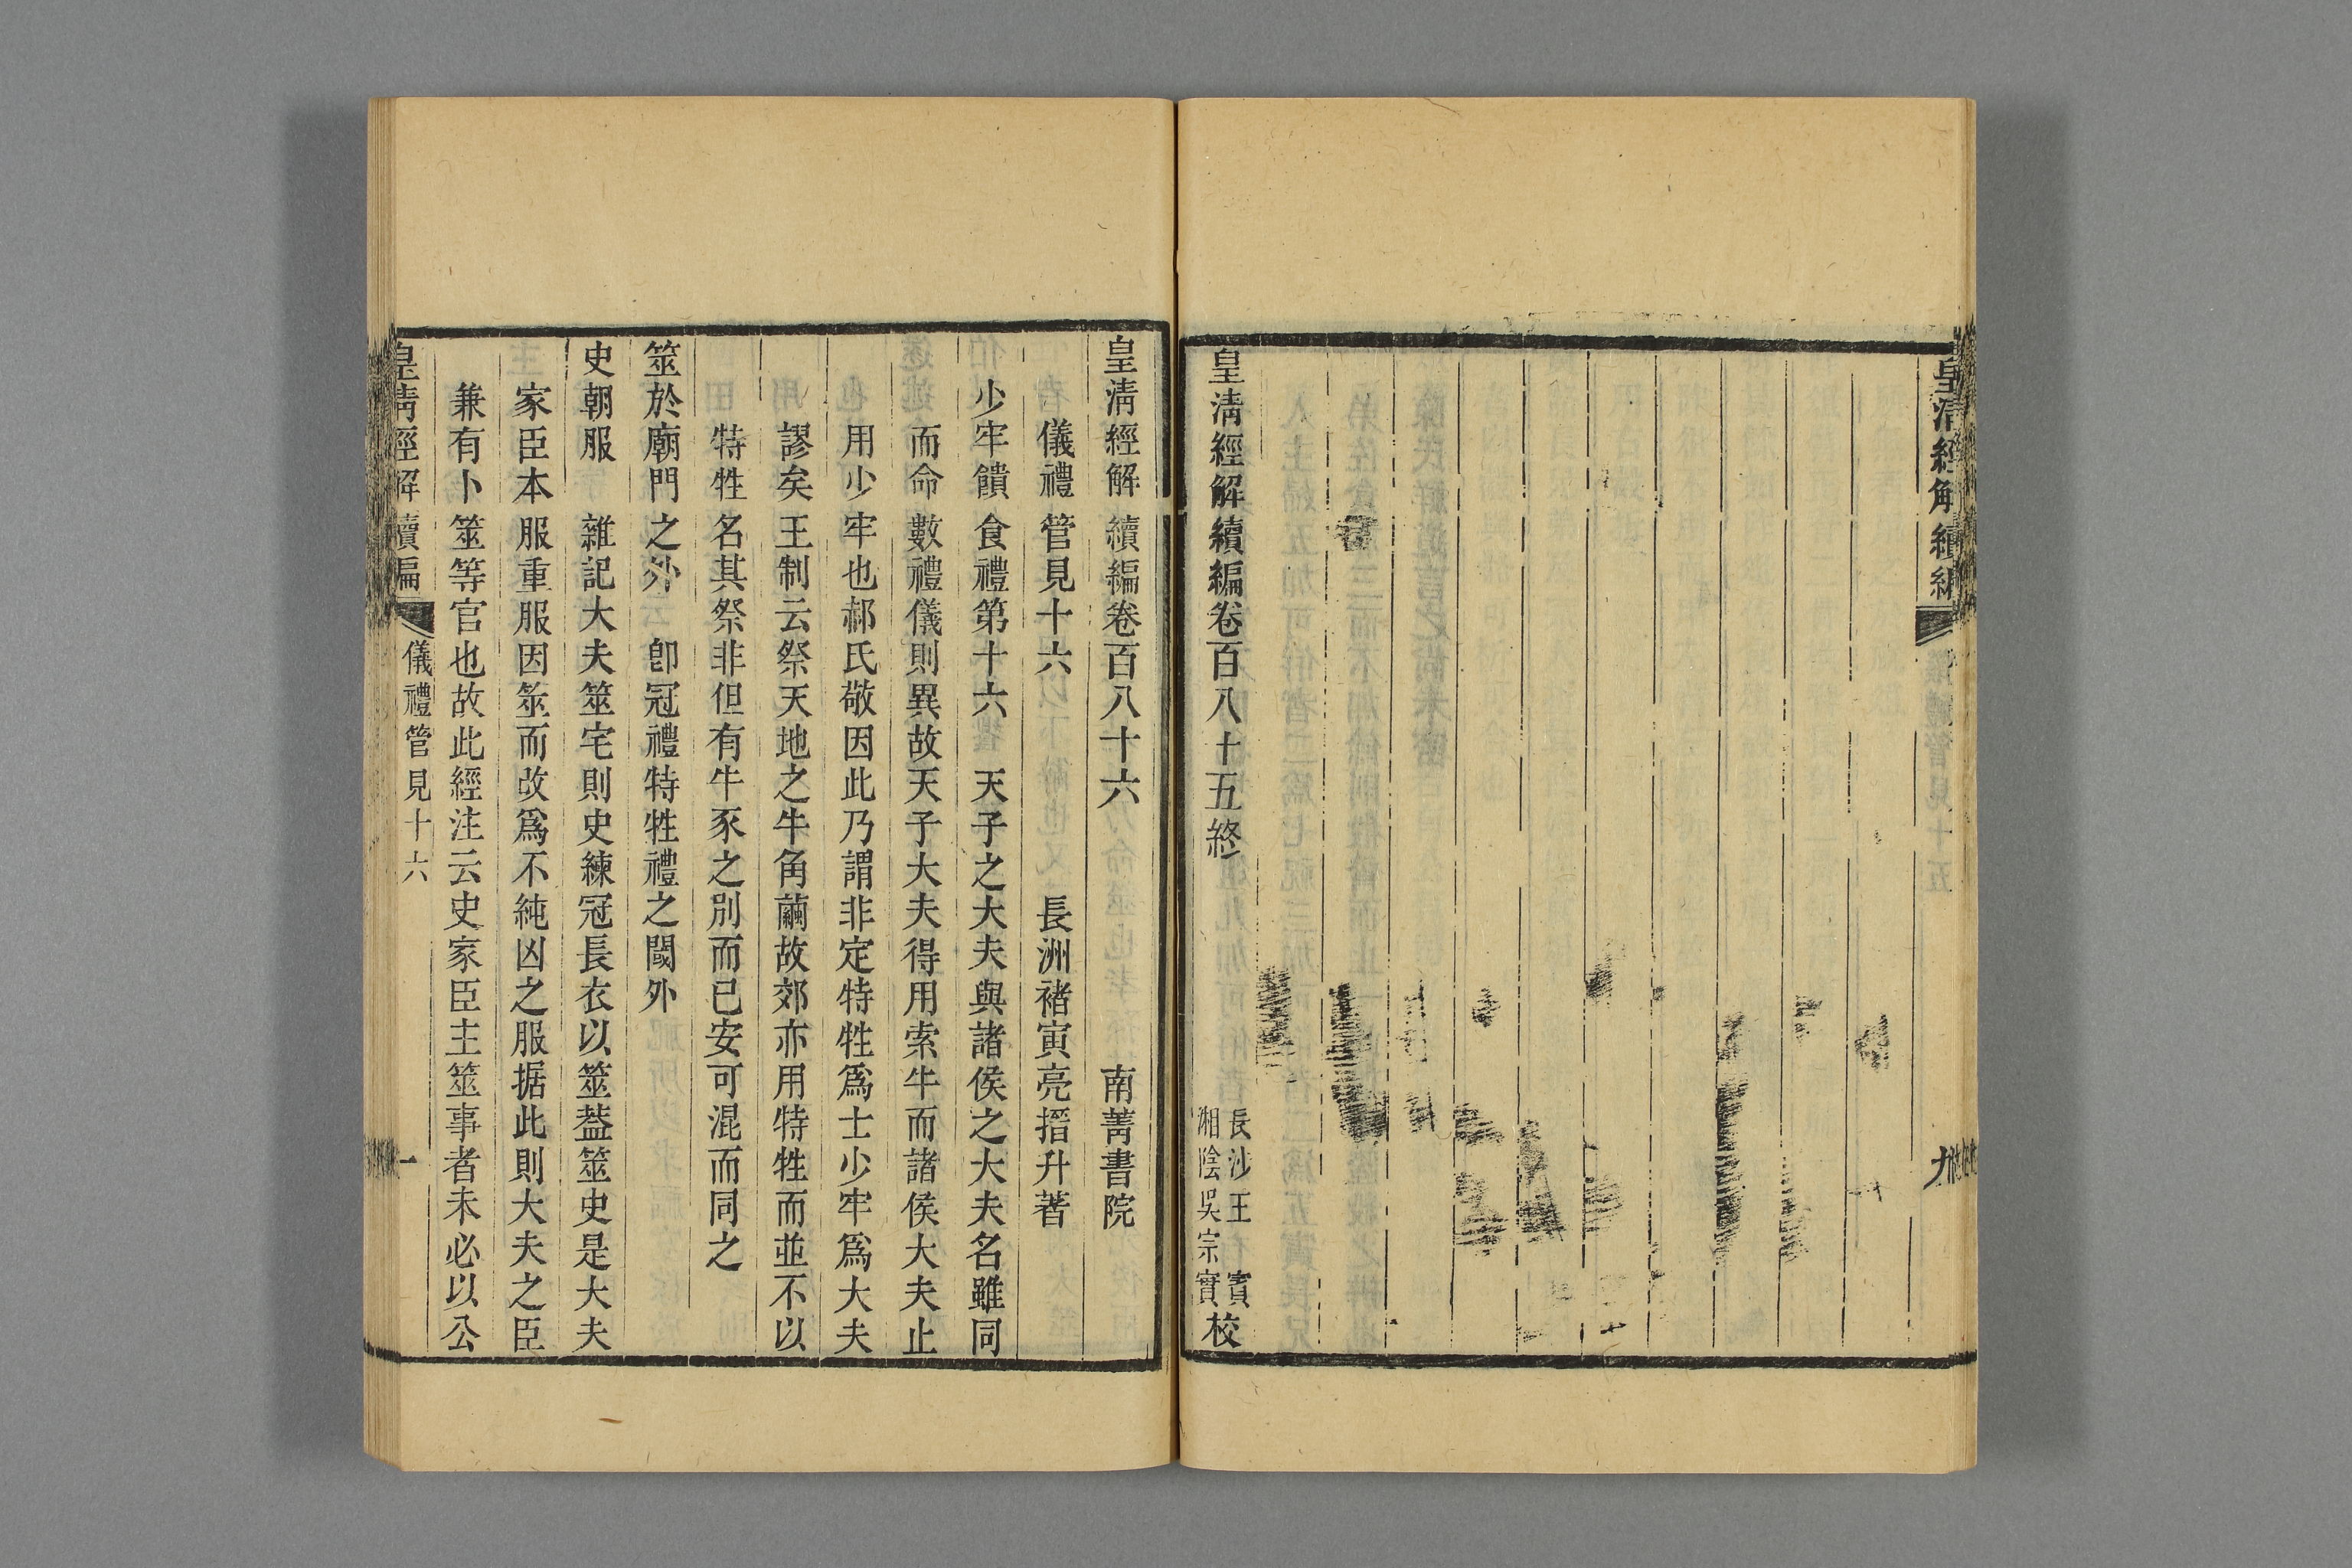 皇清經解續編
九
皇清經解續編卷百八十五終
長沙王 賓
湘陰吳宗實
校
皇清經解續編卷百八十六 南菁書院
儀禮管見十六 長洲褚寅亮搢升著
少牢饋食禮第十六 天子之大夫與諸侯之大夫名雖同
而命數禮儀則異故天子大夫得用索牛而諸侯大夫止
用少牢也郝氏敬因此乃謂非定特牲爲士少牢爲大夫
謬矣王制云祭天地之牛角繭故郊亦用特牲而並不以
特牲名其祭非但有牛豕之別而已安可混而同之
筮於廟門之外 卽冠禮特牲禮之閾外
史朝服 雜記大夫筮宅則史練冠長衣以筮葢筮史是大夫
家臣本服重服因筮而改爲不純凶之服据此則大夫之臣
兼有卜筮等官也故此經注云史家臣主筮事者未必以公
皇清經解續編 儀禮管見十六 一